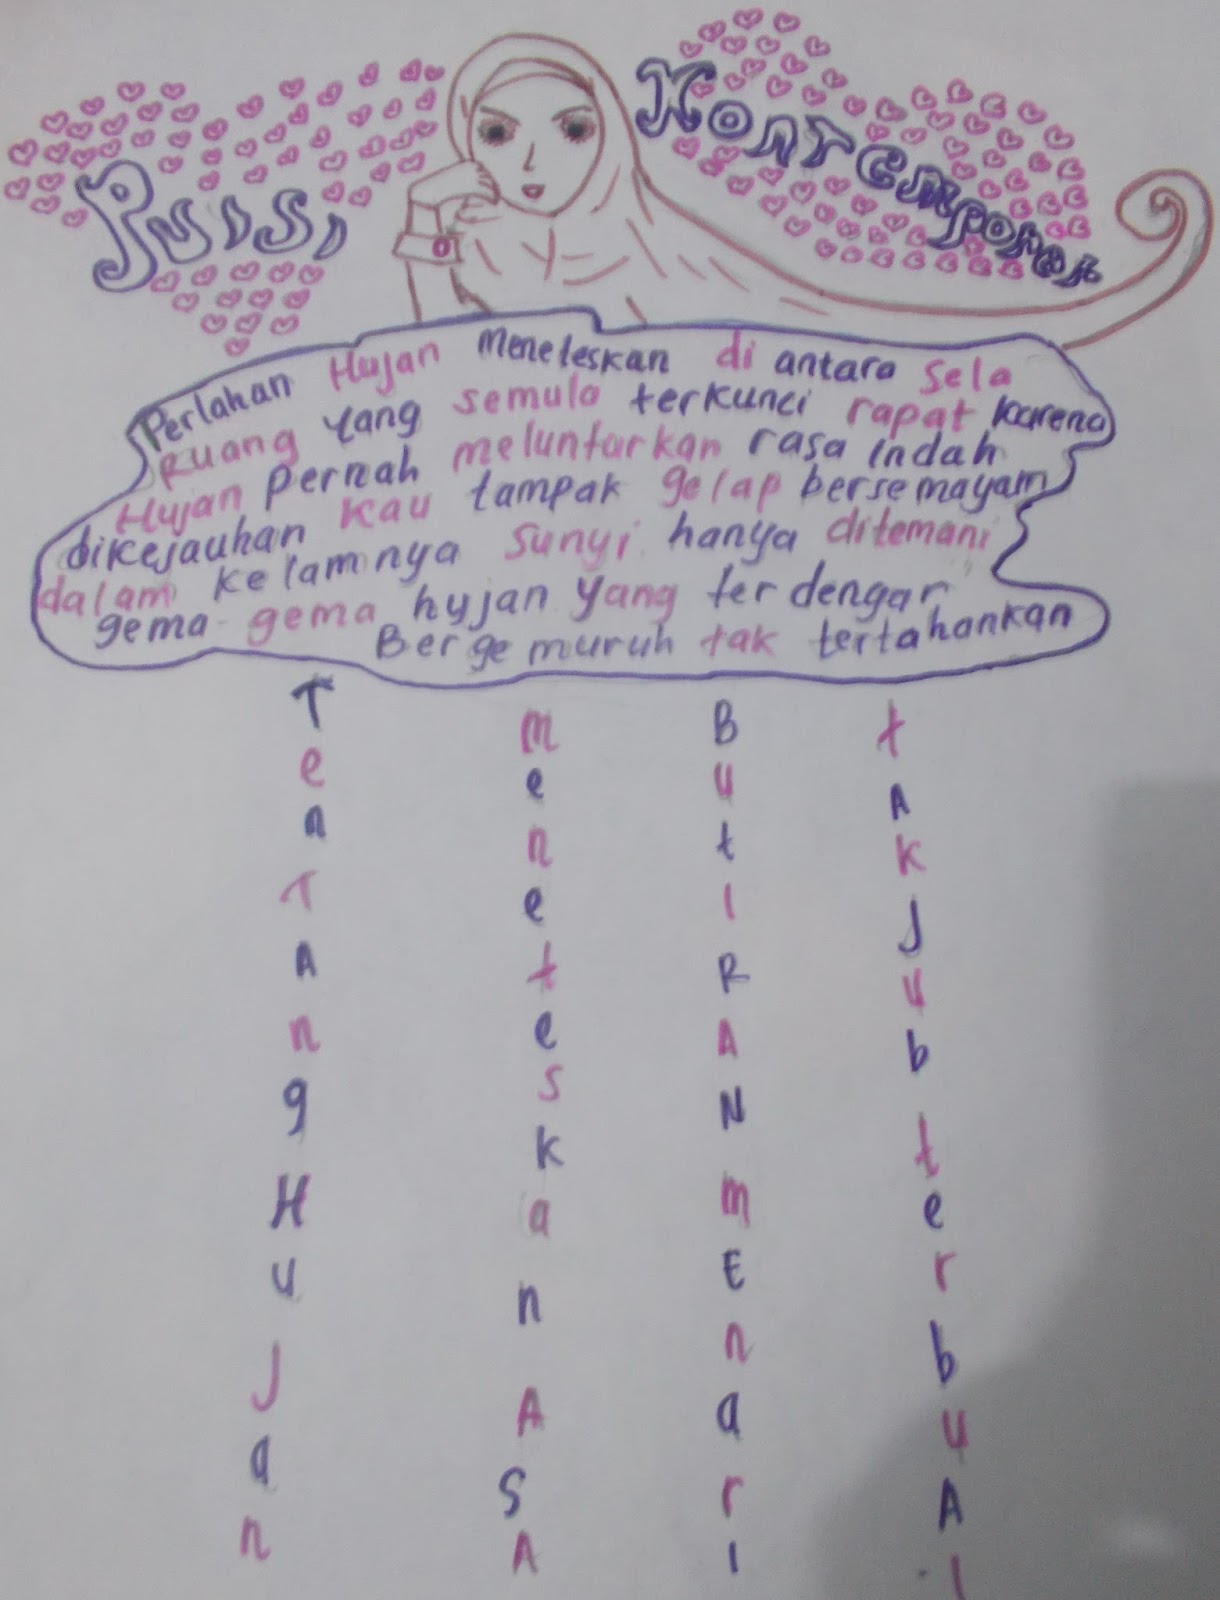 Puisi
Kontemporer
Perlahan Hujan Meneteskan di antara sela
Ruang yang semula terkunci rapat karena
Hujan pernah melunturkan rasa indah
dikejauhan Kau tampak gelap bersemayam
dalam kelamnya sunyi hanya ditemani
gema-gema hujan yang terdengar
Bergemuruh tak tertahankan
TenTAng HuJan
meneteskan ASA
ButIRAN mEnarI
tAKJUb terbUAI